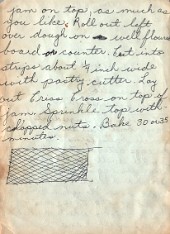 jam on top, as much as
you like. Roll out left
over dough on well flour
board or counter. Cut into
strips about 1/2 inch wide
with pastry cutter. Lay
out Criss Cross on top of
jam. Sprinkle top with
chopped nuts. Bake 30 or 35
minutes.